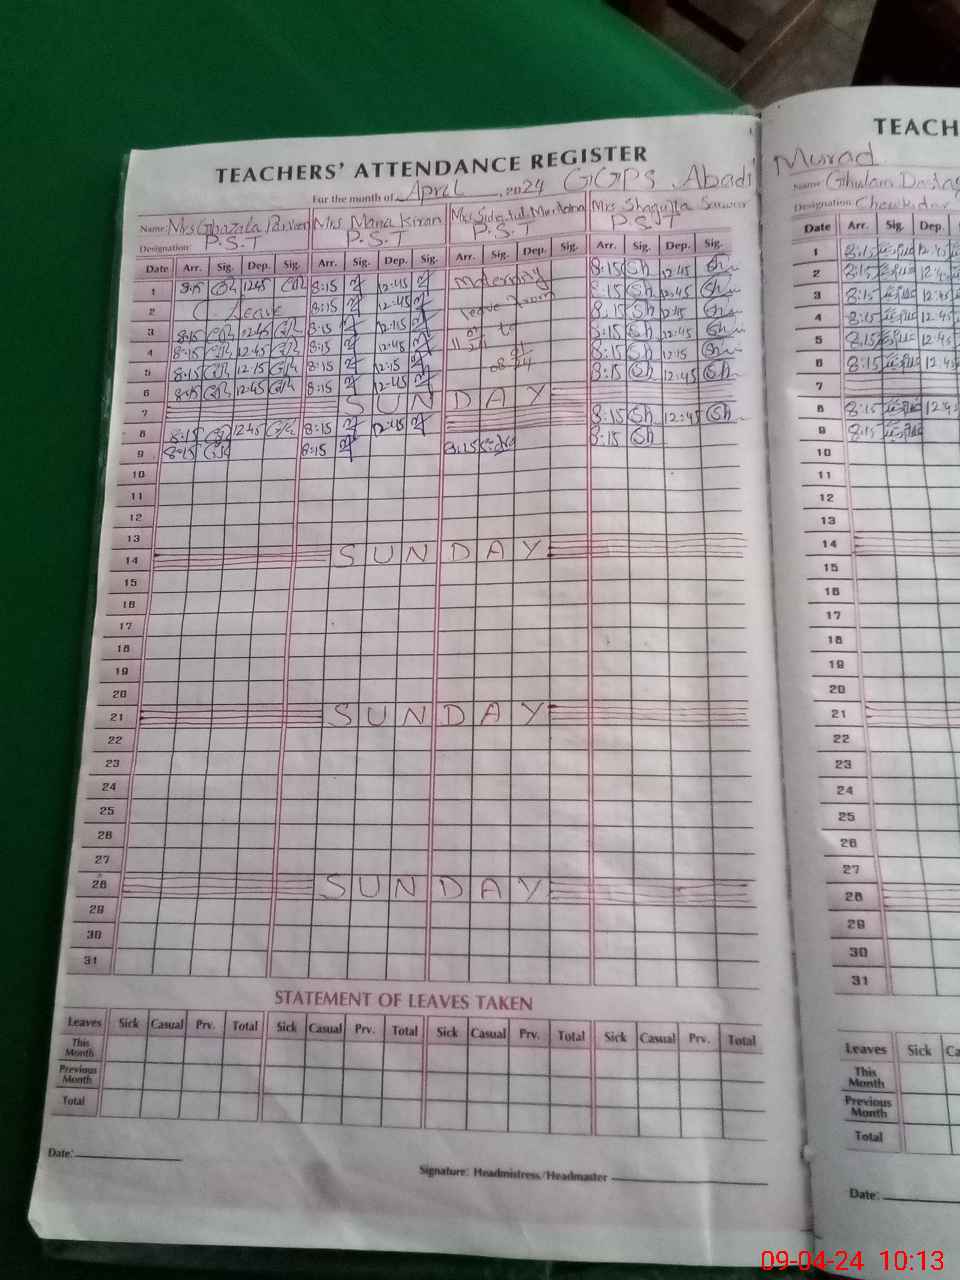 TEACHERS' ATTENDANCE REGISTER
For the month of April 2024 GGPS Abadi
Name: Mrs Ghazala Parveen Mrs Mona Kiran Mrs Mrs Shagufta Sarwar
Designation: P.S.T P.S.T P.S.T P.S.T
Date Arr. Sig. Dep. Sig. Arr. Sig. Dep. Sig. Arr. Sig. Dep. Sig. Arr. Sig. Dep. Sig.
1 8:15 12:45 8:15 12:45 8:15 Sh 12:45 Sh
2 C. Leave 8:15 12:45 leave from 8:15 Sh 12:45 Sh
3 8:15 12:45 8:15 12:15 to 8:15 Sh 12:15 Sh
4 8:15 12:45 8:15 12:45 8:15 Sh 12:45 Sh
5 8:15 12:15 8:15 12:15 8:15 Sh 12:15 Sh
6 8:15 12:45 8:15 12:45 8:15 Sh 12:45 Sh
7 SUNDAY
8 8:15 12:45 8:15 12:45 8:15 Sh 12:45 Sh
9 8:15 8:15 8:15 8:15 Sh
10
11
12
13
14 SUNDAY
15
16
17
18
19
20
21 SUNDAY
22
23
24
25
26
27
28 SUNDAY
29
30
31
STATEMENT OF LEAVES TAKEN
Leaves Sick Casual Prv. Total Sick Casual Prv. Total Sick Casual Prv. Total Sick Casual Prv. Total
This Month
Previous Month
Total
Date:
Signature: Headmistress/Headmaster
TEACH
Murad
Name: Ghulam
Designation: Chowkidar
Date Arr. Sig. Dep.
1 8:15 12:45
2 8:15 12:4
3 8:15 12:45
4 8:15 12:45
5 8:15 12:45
6 8:15 12:45
7
8 8:15 12:4
9 8:15
10
11
12
13
14
15
16
17
18
19
20
21
22
23
24
25
26
27
28
29
30
31
Leaves Sick Ca
This Month
Previous Month
Total
Date:
09-04-24 10:13